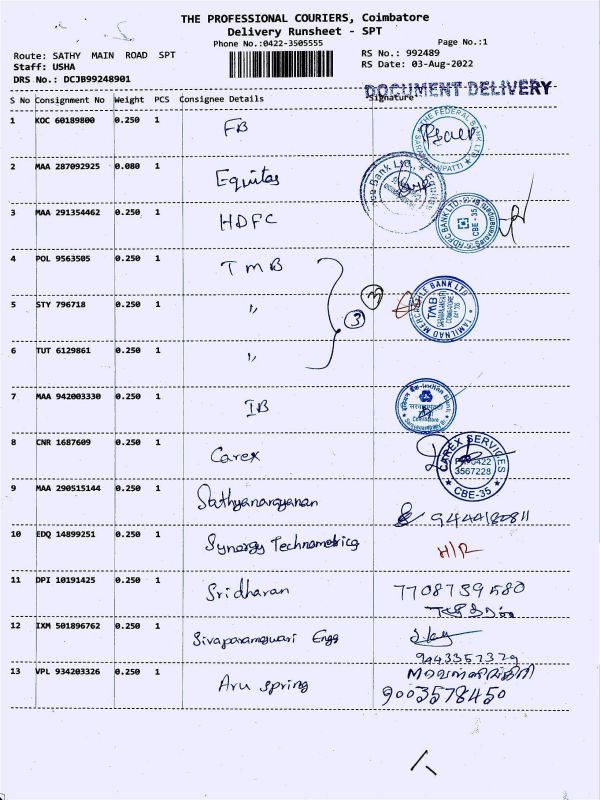 THE PROFESSIONAL COURIERS, Coimbatore
Delivery Runsheet - SPT
Phone No.:0422-3505555
Page No.:1
Route: SATHY MAIN ROAD SPT
RS No.: 992489
Staff: USHA
RS Date: 03-Aug-2022
DRS No.: DCJB99248901
DOCUMENT DELIVERY
S No Consignment No Weight PCS Consignee Details Signature
1 KOC 60189800 0.250 1 FB
THE FEDERAL BANK LTD
2 MAA 287092925 0.080 1 Equitas
3 MAA 291354462 0.250 1 HDFC
HDFC BANK LTD. CBE-35
4 POL 9563505 0.250 1 TMB
5 STY 796718 0.250 1 "
3
TAMILNAD MERCANTILE BANK LTD
TMB
6 TUT 6129861 0.250 1 "
7 MAA 942003330 0.250 1 IB
Indian Bank
8 CNR 1687609 0.250 1 Carex
CAREX SERVICES
3567228
CBE-35
9 MAA 290515144 0.250 1 Sathyanarayanan
10 EDQ 14899251 0.250 1 Synergy Technometrics H/R
11 DPI 10191425 0.250 1 Sridharan 7708739580
12 IXM 501896762 0.250 1 Sivaparameswari Engg
9443357379
13 VPL 934203326 0.250 1 Aru spring
9003578450